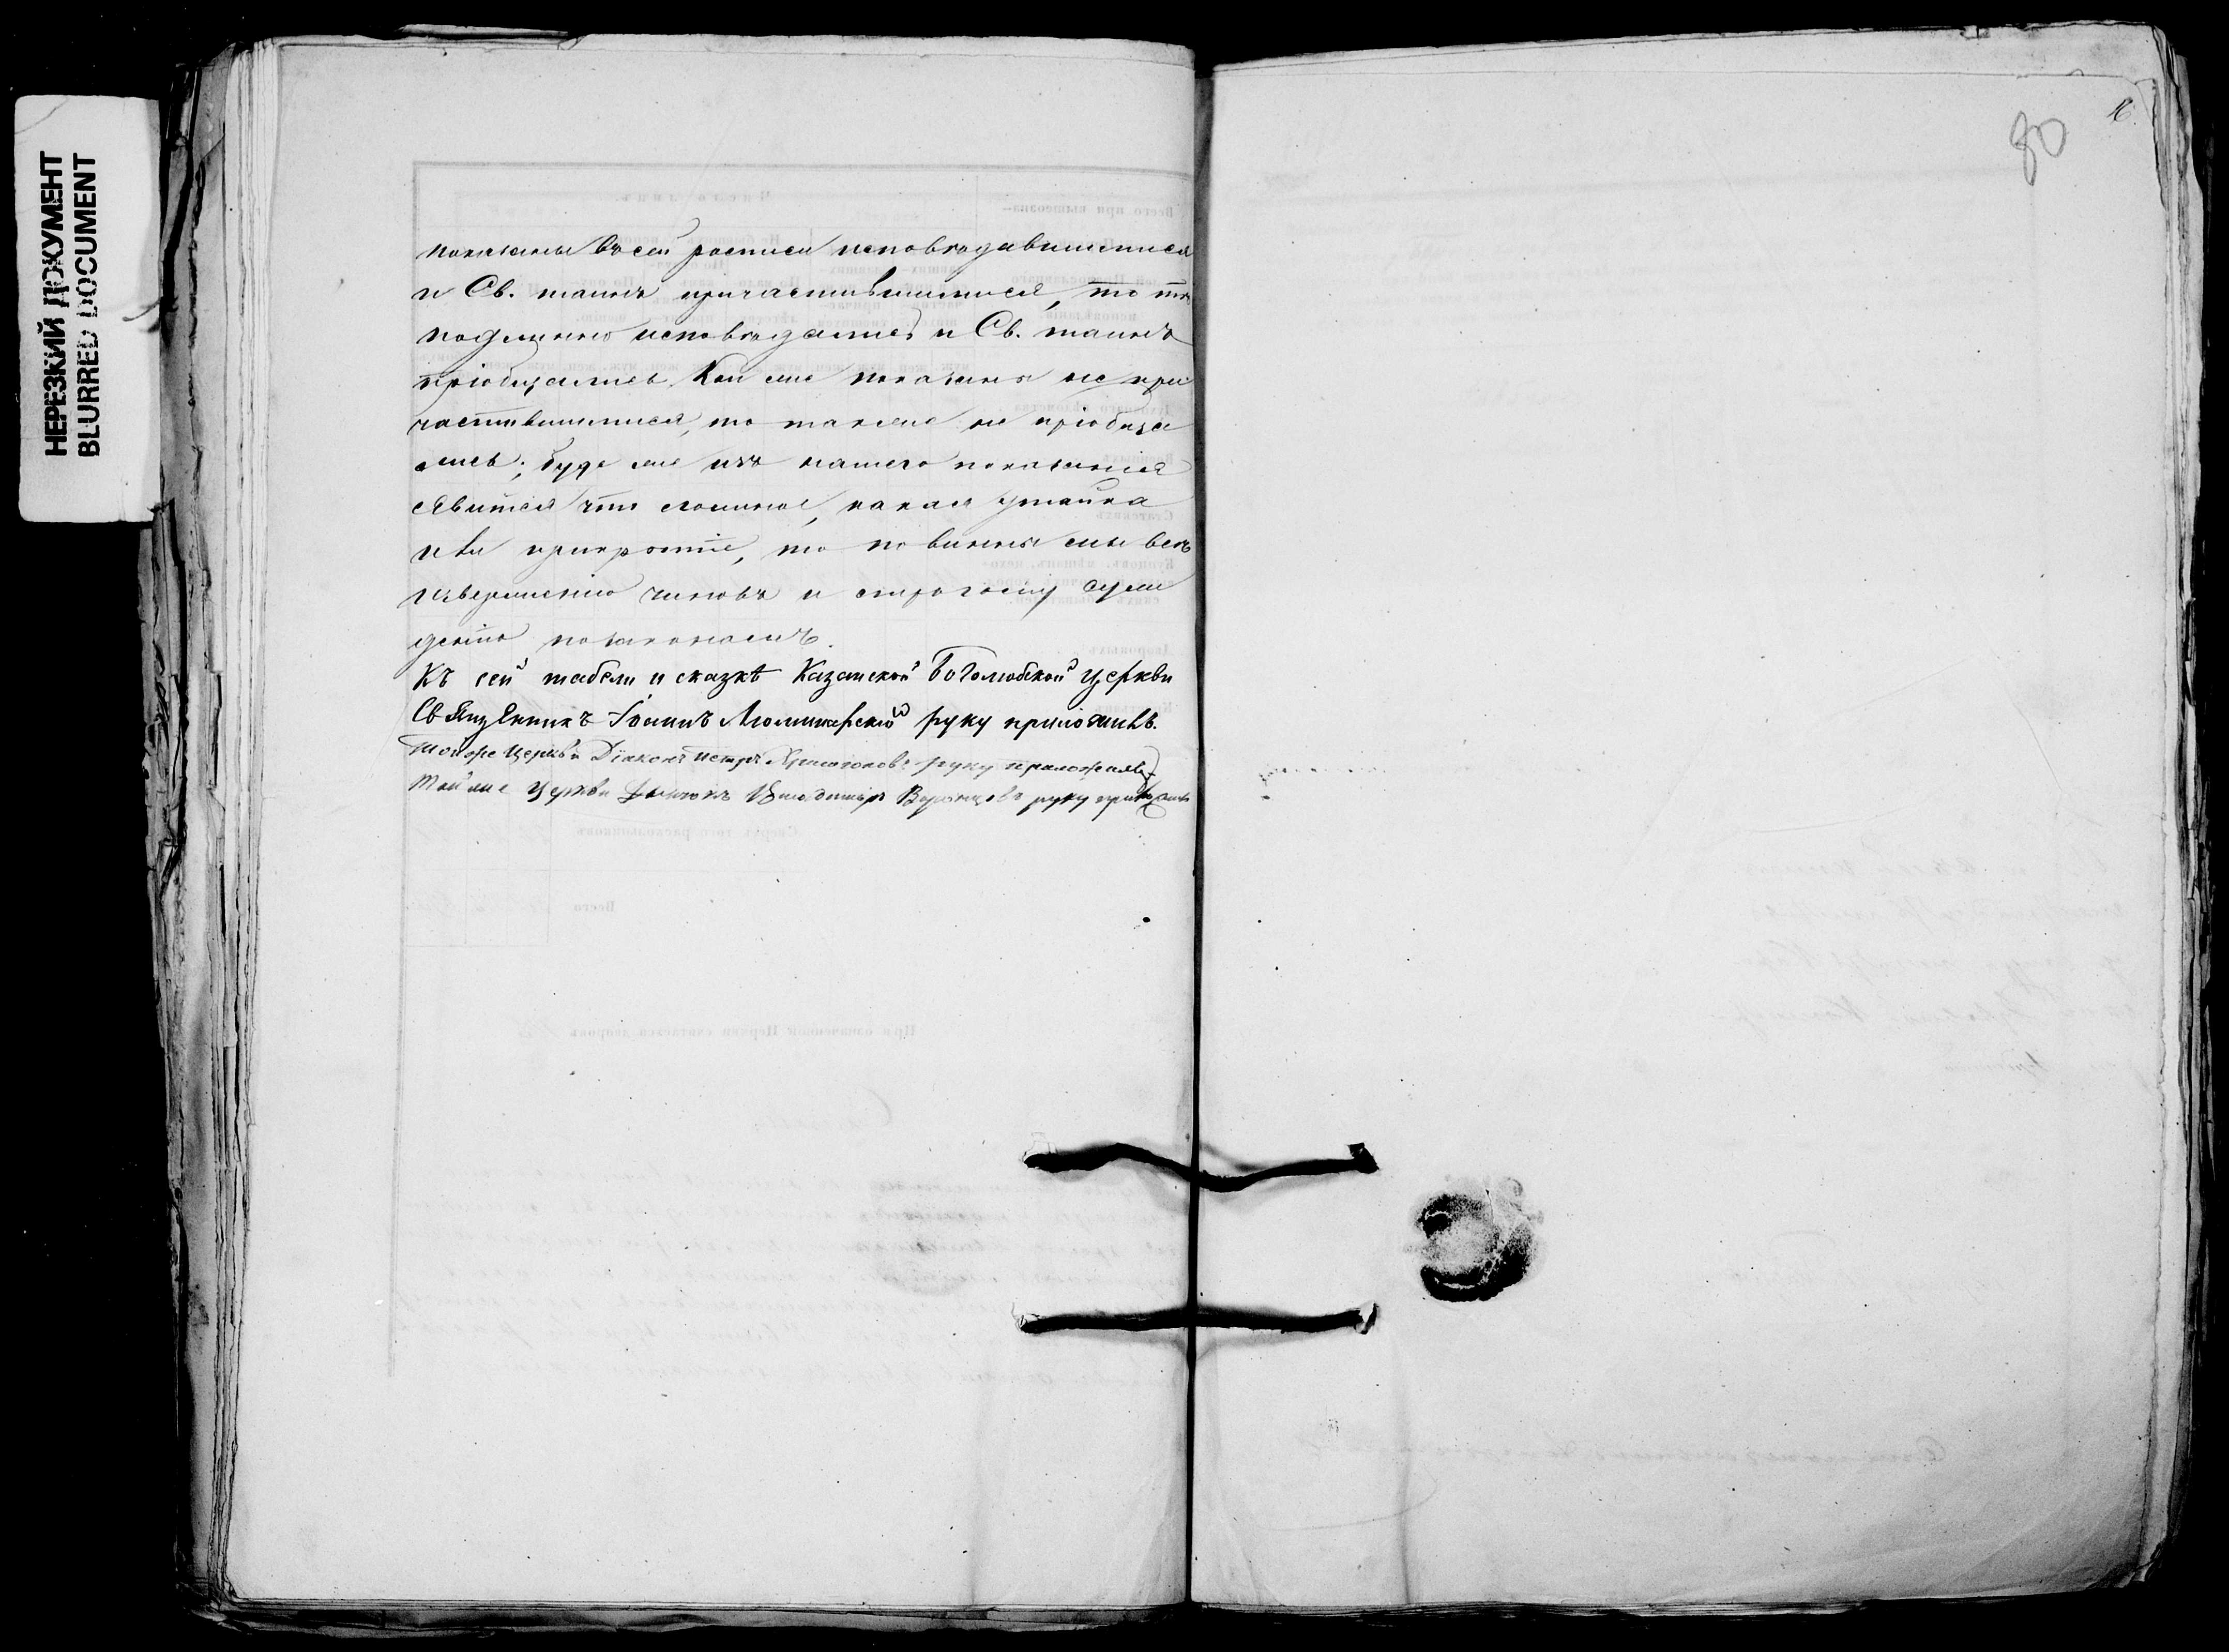 НЕРЕЗКИЙ ДОКУМЕНТ
BLURRED DOCUMENT
показаны въ сей росписи исповѣдавшимися
и Св. таинъ причастившимися, то тѣ
подлинно исповѣдались и Св. таинъ
пріобщались. Кои же показаны не при
частившимися, то также не пріобща
лись; буде же изъ нашего показанія
явится что ложное, какая утайка
или прикрытіе, то повинны мы всѣ
изверженію чиновъ и строгому суж
денію по законамъ.
Къ сей табели и сказкѣ Казанской Боголюбской церкви
Священникъ Іоаннъ руку приложилъ.
Тойже церкви Діаконъ Петръ руку приложилъ
Той же церкви Дьячокъ Владимiръ Воронцовъ руку приложилъ
80
16